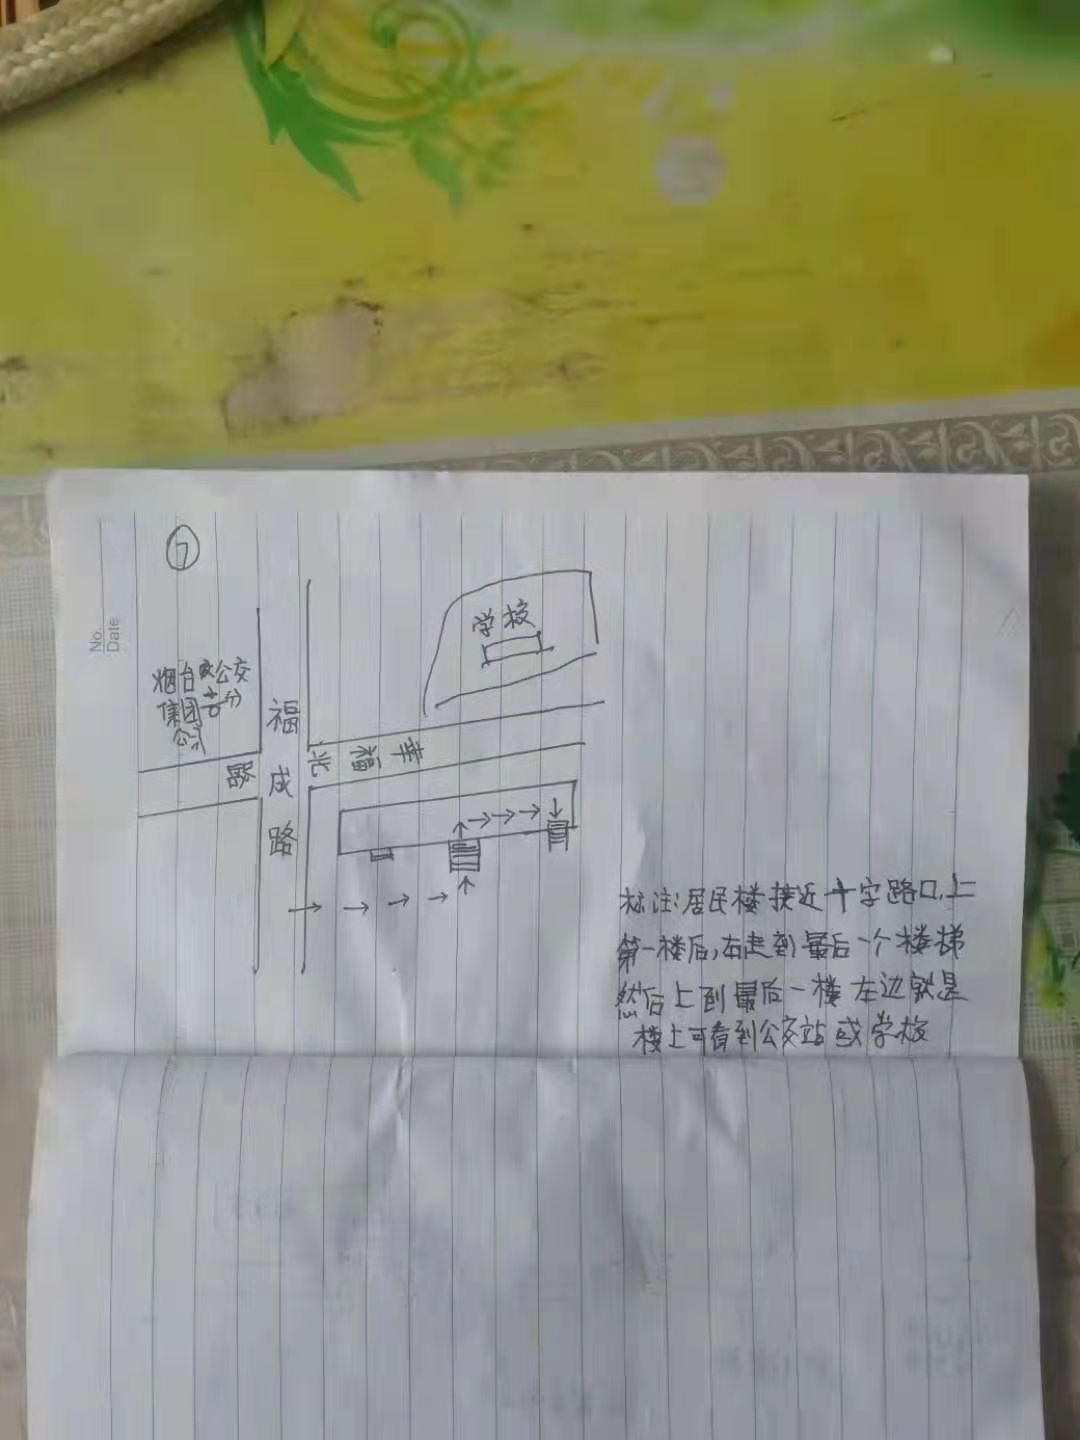 7
No.
Date
学校
烟台公交
集团
公司
福成路
幸福北
路
标注:居民楼接近十字路口,上
第一楼后,右走到最后一个楼梯
然后上到最后一楼左边就是
楼上可看到公交站或学校